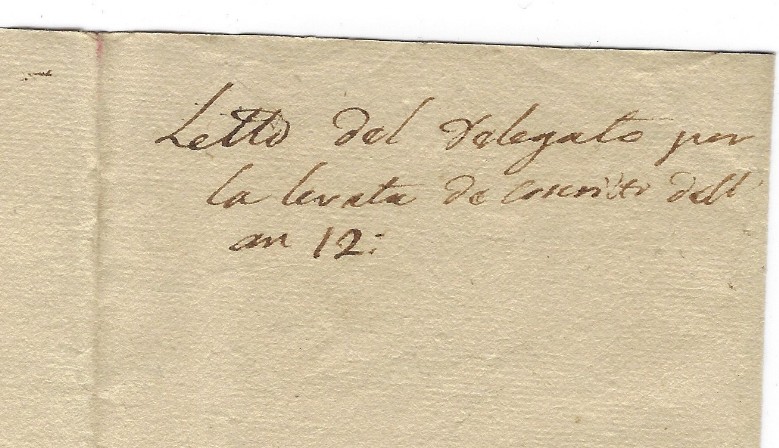 Letto del Delegato per
la levata de Coscritti dell'
an 12: